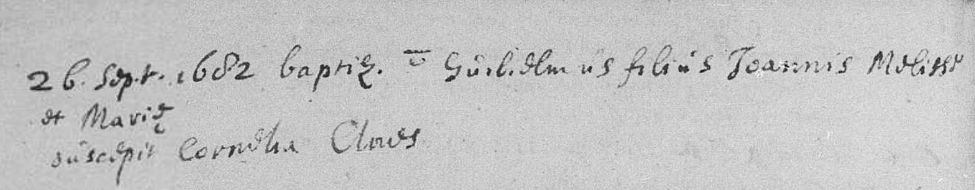 26. Sept. 1682 baptiz. ē Guilielmus filius Joannis Meliss
et Mariæ
suscepit Cornelia Claes